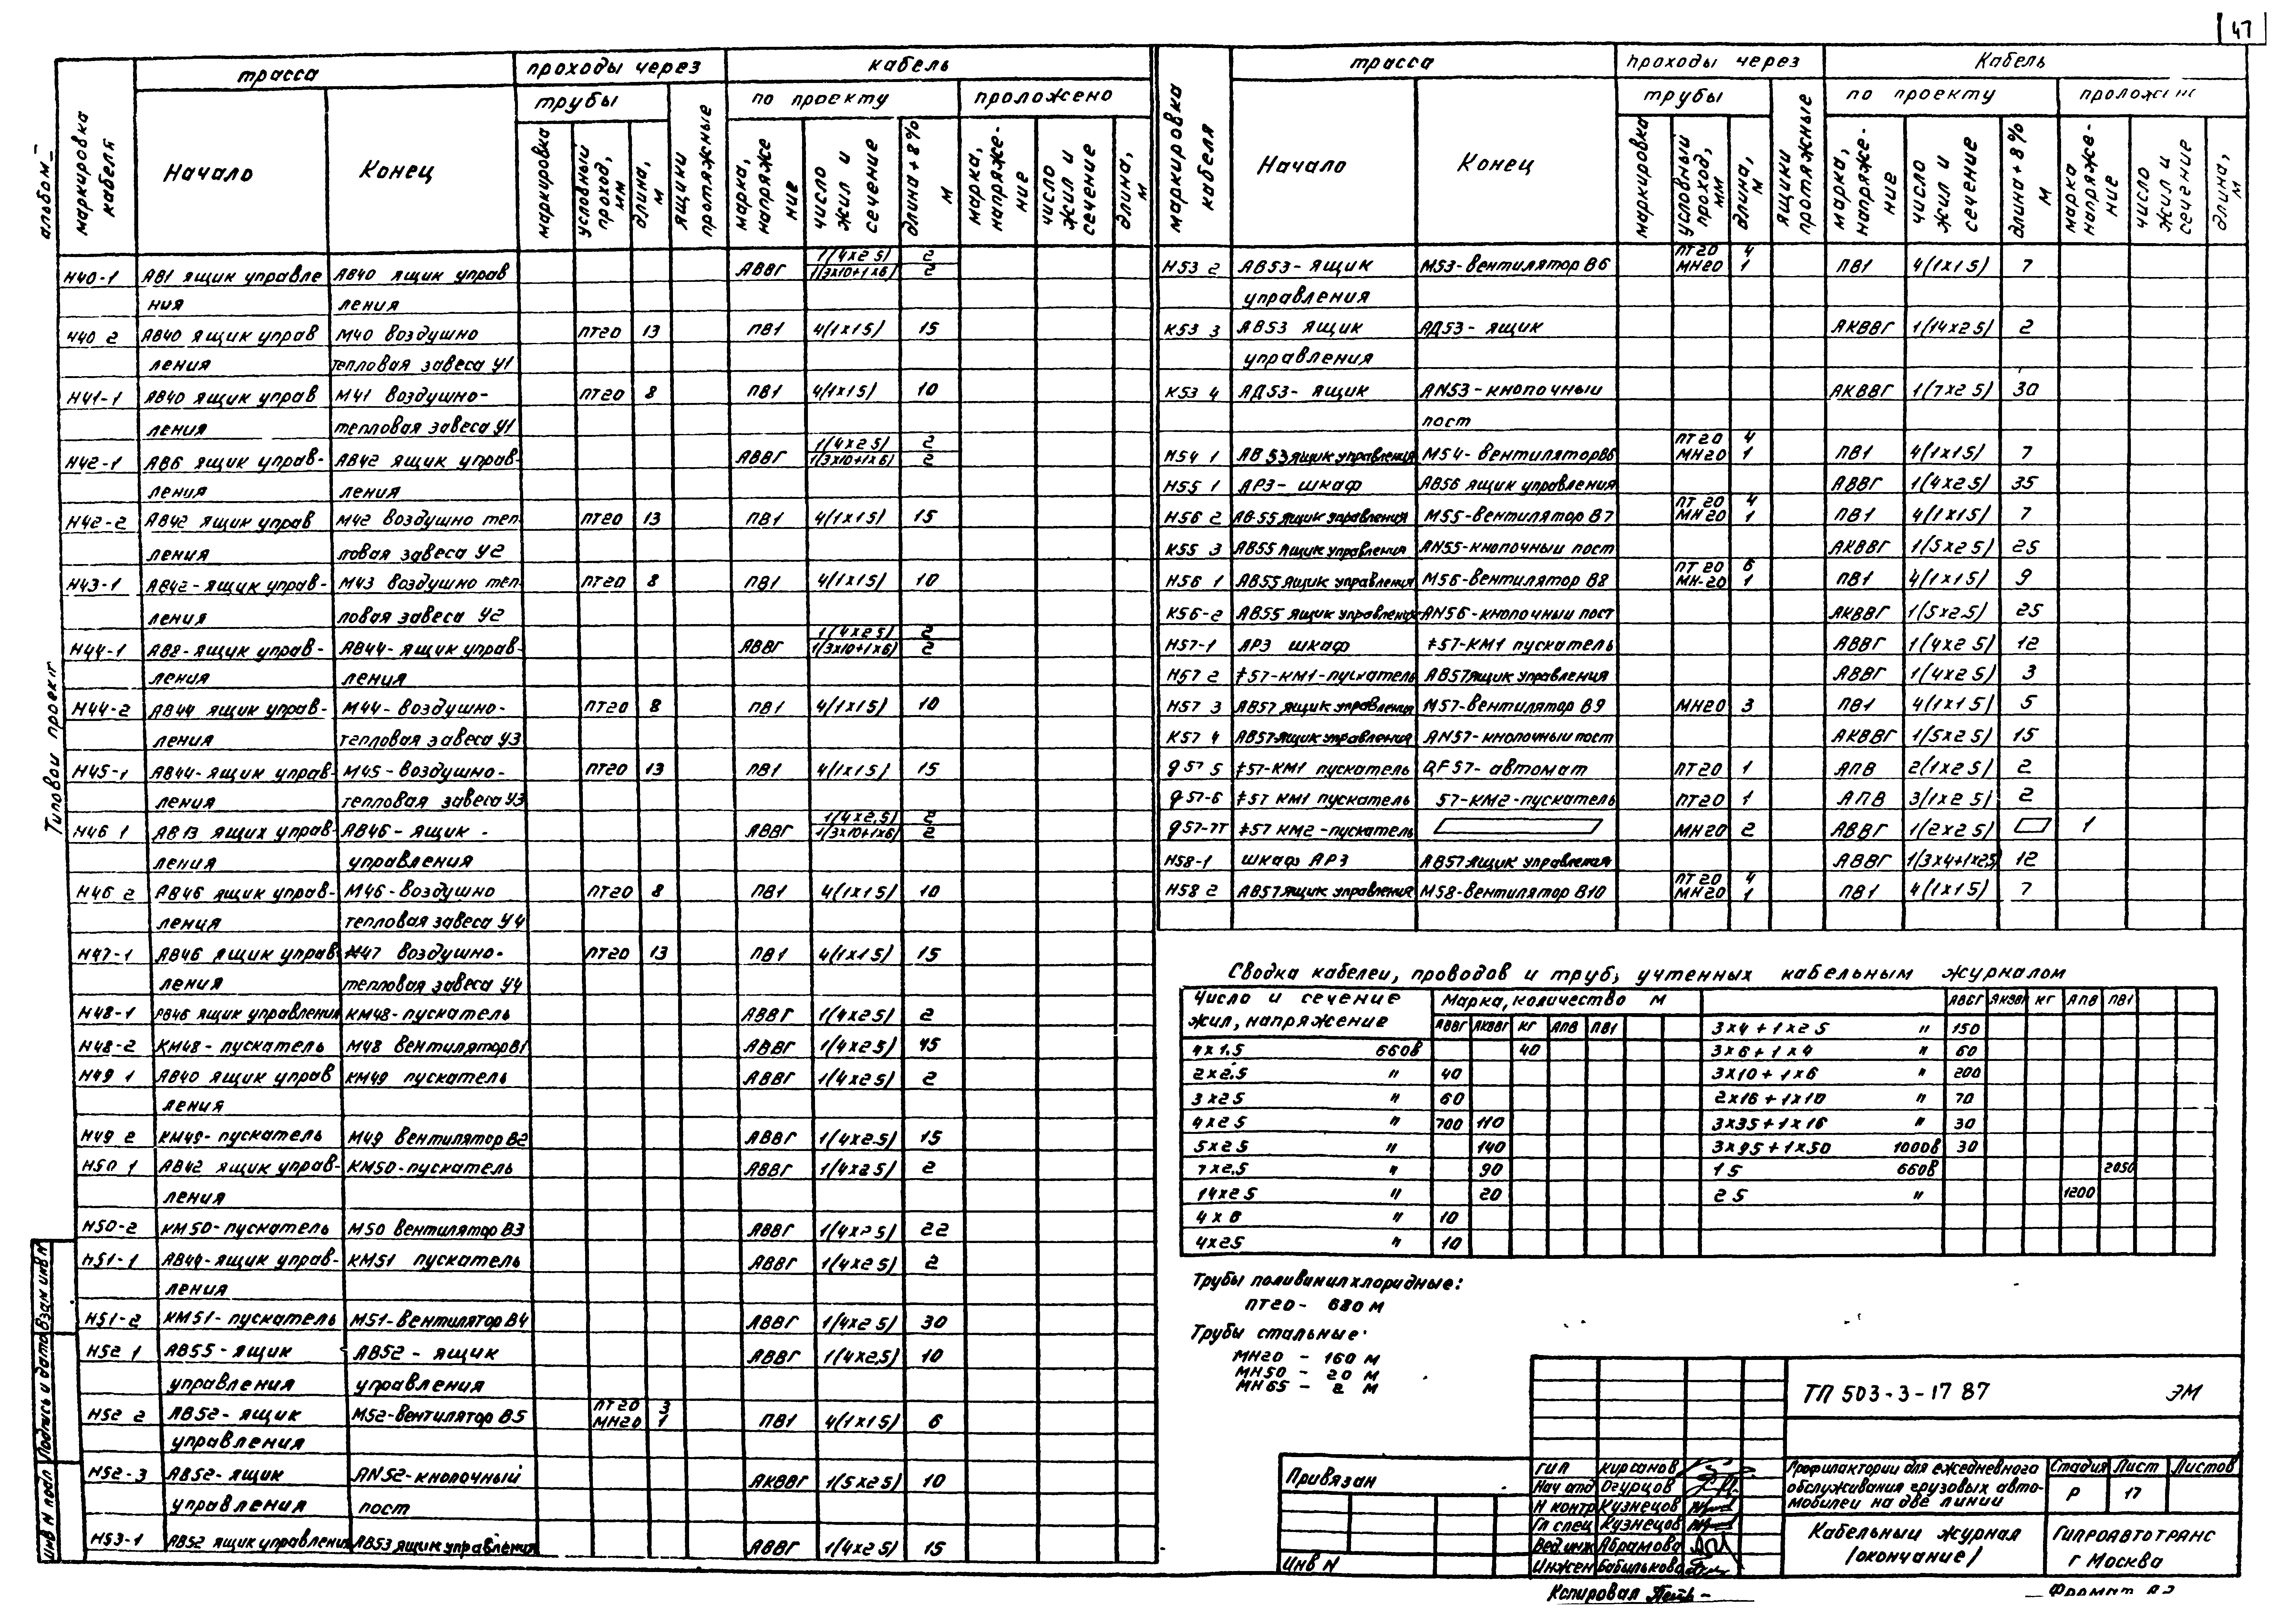 47
альбом
Типовой проект
маркировка кабеля
трасса
проходы через
кабель
Начало
Конец
трубы
ящики протяжные
по проекту
проложено
маркировка
условный проход, мм
длина, м
марка, напряже ние
число жил и сечение
длина+8% м
марка, напряже- ние
число жил и сечение
длина, м
1(4х2 5) 2
Н40-1 АВ1 ящик управле АВ40 ящик управ АВВГ 1(3х10+1х6) 2
ния ления
Н40 2 АВ40 ящик управ М40 воздушно ПТ20 13 ПВ1 4(1х1 5) 15
ления тепловая завеса У1
Н41-1 АВ40 ящик управ М41 воздушно- ПТ20 8 ПВ1 4(1х1 5) 10
ления тепловая завеса У1
1(4х2 5) 2
Н42-1 АВ6 ящик управ- АВ42 ящик управ- АВВГ 1(3х10+1х6) 2
ления ления
Н42-2 АВ42 ящик управ М42 воздушно теп ПТ20 13 ПВ1 4(1х1 5) 15
ления ловая завеса У2
Н43-1 АВ42-ящик управ- М43 воздушно теп ПТ20 8 ПВ1 4(1х1 5) 10
ления ловая завеса У2
1(4х2 5) 2
Н44-1 АВ8-ящик управ- АВ44-ящик управ- АВВГ 1(3х10+1х6) 2
ления ления
Н44-2 АВ44 ящик управ- М44-воздушно- ПТ20 8 ПВ1 4(1х1 5) 10
ления тепловая завеса У3
Н45-1 АВ44-ящик управ- М45-воздушно- ПТ20 13 ПВ1 4(1х1 5) 15
ления тепловая завеса У3
1(4х2,5) 2
Н46 1 АВ13 ящик управ- АВ46-ящик - АВВГ 1(3х10+1х6) 2
ления управления
Н46 2 АВ46 ящик управ- М46-воздушно ПТ20 8 ПВ1 4(1х1 5) 10
ления тепловая завеса У4
Н47-1 АВ46 ящик управ М47 воздушно- ПТ20 13 ПВ1 4(1х1 5) 15
ления тепловая завеса У4
Н48-1 АВ46 ящик управления КМ48-пускатель АВВГ 1(4х2 5) 2
Н48-2 КМ48-пускатель М48 вентилятор В1 АВВГ 1(4х2 5) 45
Н49 1 АВ40 ящик управ КМ49 пускатель АВВГ 1(4х2 5) 2
ления
Н49 2 КМ49-пускатель М49 вентилятор В2 АВВГ 1(4х2.5) 15
Н50 1 АВ42 ящик управ- КМ50-пускатель АВВГ 1(4х2 5) 2
ления
Н50-2 КМ50-пускатель М50 вентилятор В3 АВВГ 1(4х2 5) 22
Н51-1 АВ44-ящик управ- КМ51 пускатель АВВГ 1(4х2 5) 2
ления
Н51-2 КМ51-пускатель М51-вентилятор В4 АВВГ 1(4х2 5) 30
Н52 1 АВ55-ящик АВ52-ящик АВВГ 1(4х2,5) 10
управления управления
ПТ20 3
Н52 2 АВ52-ящик М52-вентилятор В5 МН20 1 ПВ1 4(1х1 5) 6
управления
Н52-3 АВ52-ящик AN52-кнопочный АКВВГ 1(5х2 5) 10
управления пост
Н53-1 АВ52 ящик управления АВ53 ящик управления АВВГ 1(4х2 5) 15
маркировка кабеля
трасса
проходы через
Кабель
Начало
Конец
трубы
ящики протяжные
по проекту
проложено
маркировка
условный проход, мм
длина, м
марка, напряже- ние
число жил и сечение
длина+8% м
марка напряже- ние
число жил и сечение
длина, м
ПТ20 4
Н53 2 АВ53-ящик М53-вентилятор В6 МН20 1 ПВ1 4(1х1 5) 7
управления
К53 3 АВ53 ящик АД53-ящик АКВВГ 1(14х2 5) 2
управления
К53 4 АД53-ящик AN53-кнопочный АКВВГ 1(7х2 5) 30
пост
ПТ20 4
Н54 1 АВ53 ящик управления М54-вентилятор В6 МН20 1 ПВ1 4(1х1 5) 7
Н55 1 АР3-шкаф АВ56 ящик управления АВВГ 1(4х2 5) 35
ПТ 20 4
Н56 2 АВ-55 ящик управления М55-вентилятор В7 МН20 1 ПВ1 4(1х1 5) 7
К55 3 АВ55 ящик управления AN55-кнопочный пост АКВВГ 1(5х2 5) 25
ПТ 20 6
Н56 1 АВ55 ящик управления М56-вентилятор В8 МН-20 1 ПВ1 4(1х1 5) 9
К56-2 АВ55 ящик управления AN56-кнопочный пост АКВВГ 1(5х2.5) 25
Н57-1 АР3 шкаф ‡57-КМ1 пускатель АВВГ 1(4х2 5) 12
Н57 2 ‡57-КМ1-пускатель АВ57 ящик управления АВВГ 1(4х2 5) 3
Н57 3 АВ57 ящик управления М57-вентилятор В9 МН20 3 ПВ1 4(1х1 5) 5
К57 4 АВ57 ящик управления AN57-кнопочный пост АКВВГ 1(5х2 5) 15
g 57 5 ‡57-КМ1 пускатель QF57-автомат ПТ20 1 АПВ 2(1х2 5) 2
g 57-6 ‡57 КМ1 пускатель 57-КМ2-пускатель ПТ20 1 АПВ 3(1х2 5) 2
g 57-7т ‡57 КМ2-пускатель МН20 2 АВВГ 1(2х2 5) 1
Н58-1 шкаф АР3 АВ57 ящик управления АВВГ 1(3х4+1х2,5) 12
ПТ 20 4
Н58 2 АВ57 ящик управления М58-вентилятор В10 МН20 1 ПВ1 4(1х1 5) 7
Сводка кабелей, проводов и труб, учтенных кабельным журналом
Число и сечение жил, напряжение
Марка, количество м
АВВГ АКВВГ КГ АПВ ПВ1
АВВГ АКВВГ КГ АПВ ПВ1
3х4+1х2 5 " 150
4х1.5 660в 40 3х6+1х4 " 60
2х2.5 " 40 3х10+1х6 " 200
3х2 5 " 60 2х16+1х10 " 70
4х2 5 " 700 110 3х35+1х16 " 30
5х2 5 " 140 3х95+1х50 1000в 30
7х2,5 " 90 1 5 660в 2050
14х2 5 " 20 2 5 " 1200
4х6 " 10
4х25 " 10
Трубы поливинилхлоридные:
ПТ20- 680 м
Трубы стальные
МН20 - 160 м
МН50 - 20 м
МН65 - 2 м
ТП 503-3-17 87 ЭМ
Привязан
Инв N
ГИП Кирсанов
Нач отд Огурцов
Н контр Кузнецов
Гл спец Кузнецов
Вед.инж Абрамова
Инжен Бабылькова
Профилакторий для ежедневного
обслуживания грузовых авто-
мобилей на две линии
Стадия Лист Листов
Р 17
Кабельный журнал
(окончание)
ГИПРОАВТОТРАНС
г Москва
Копировал
Формат А2
Инв N подл
Подпись и дата
Взам инв N